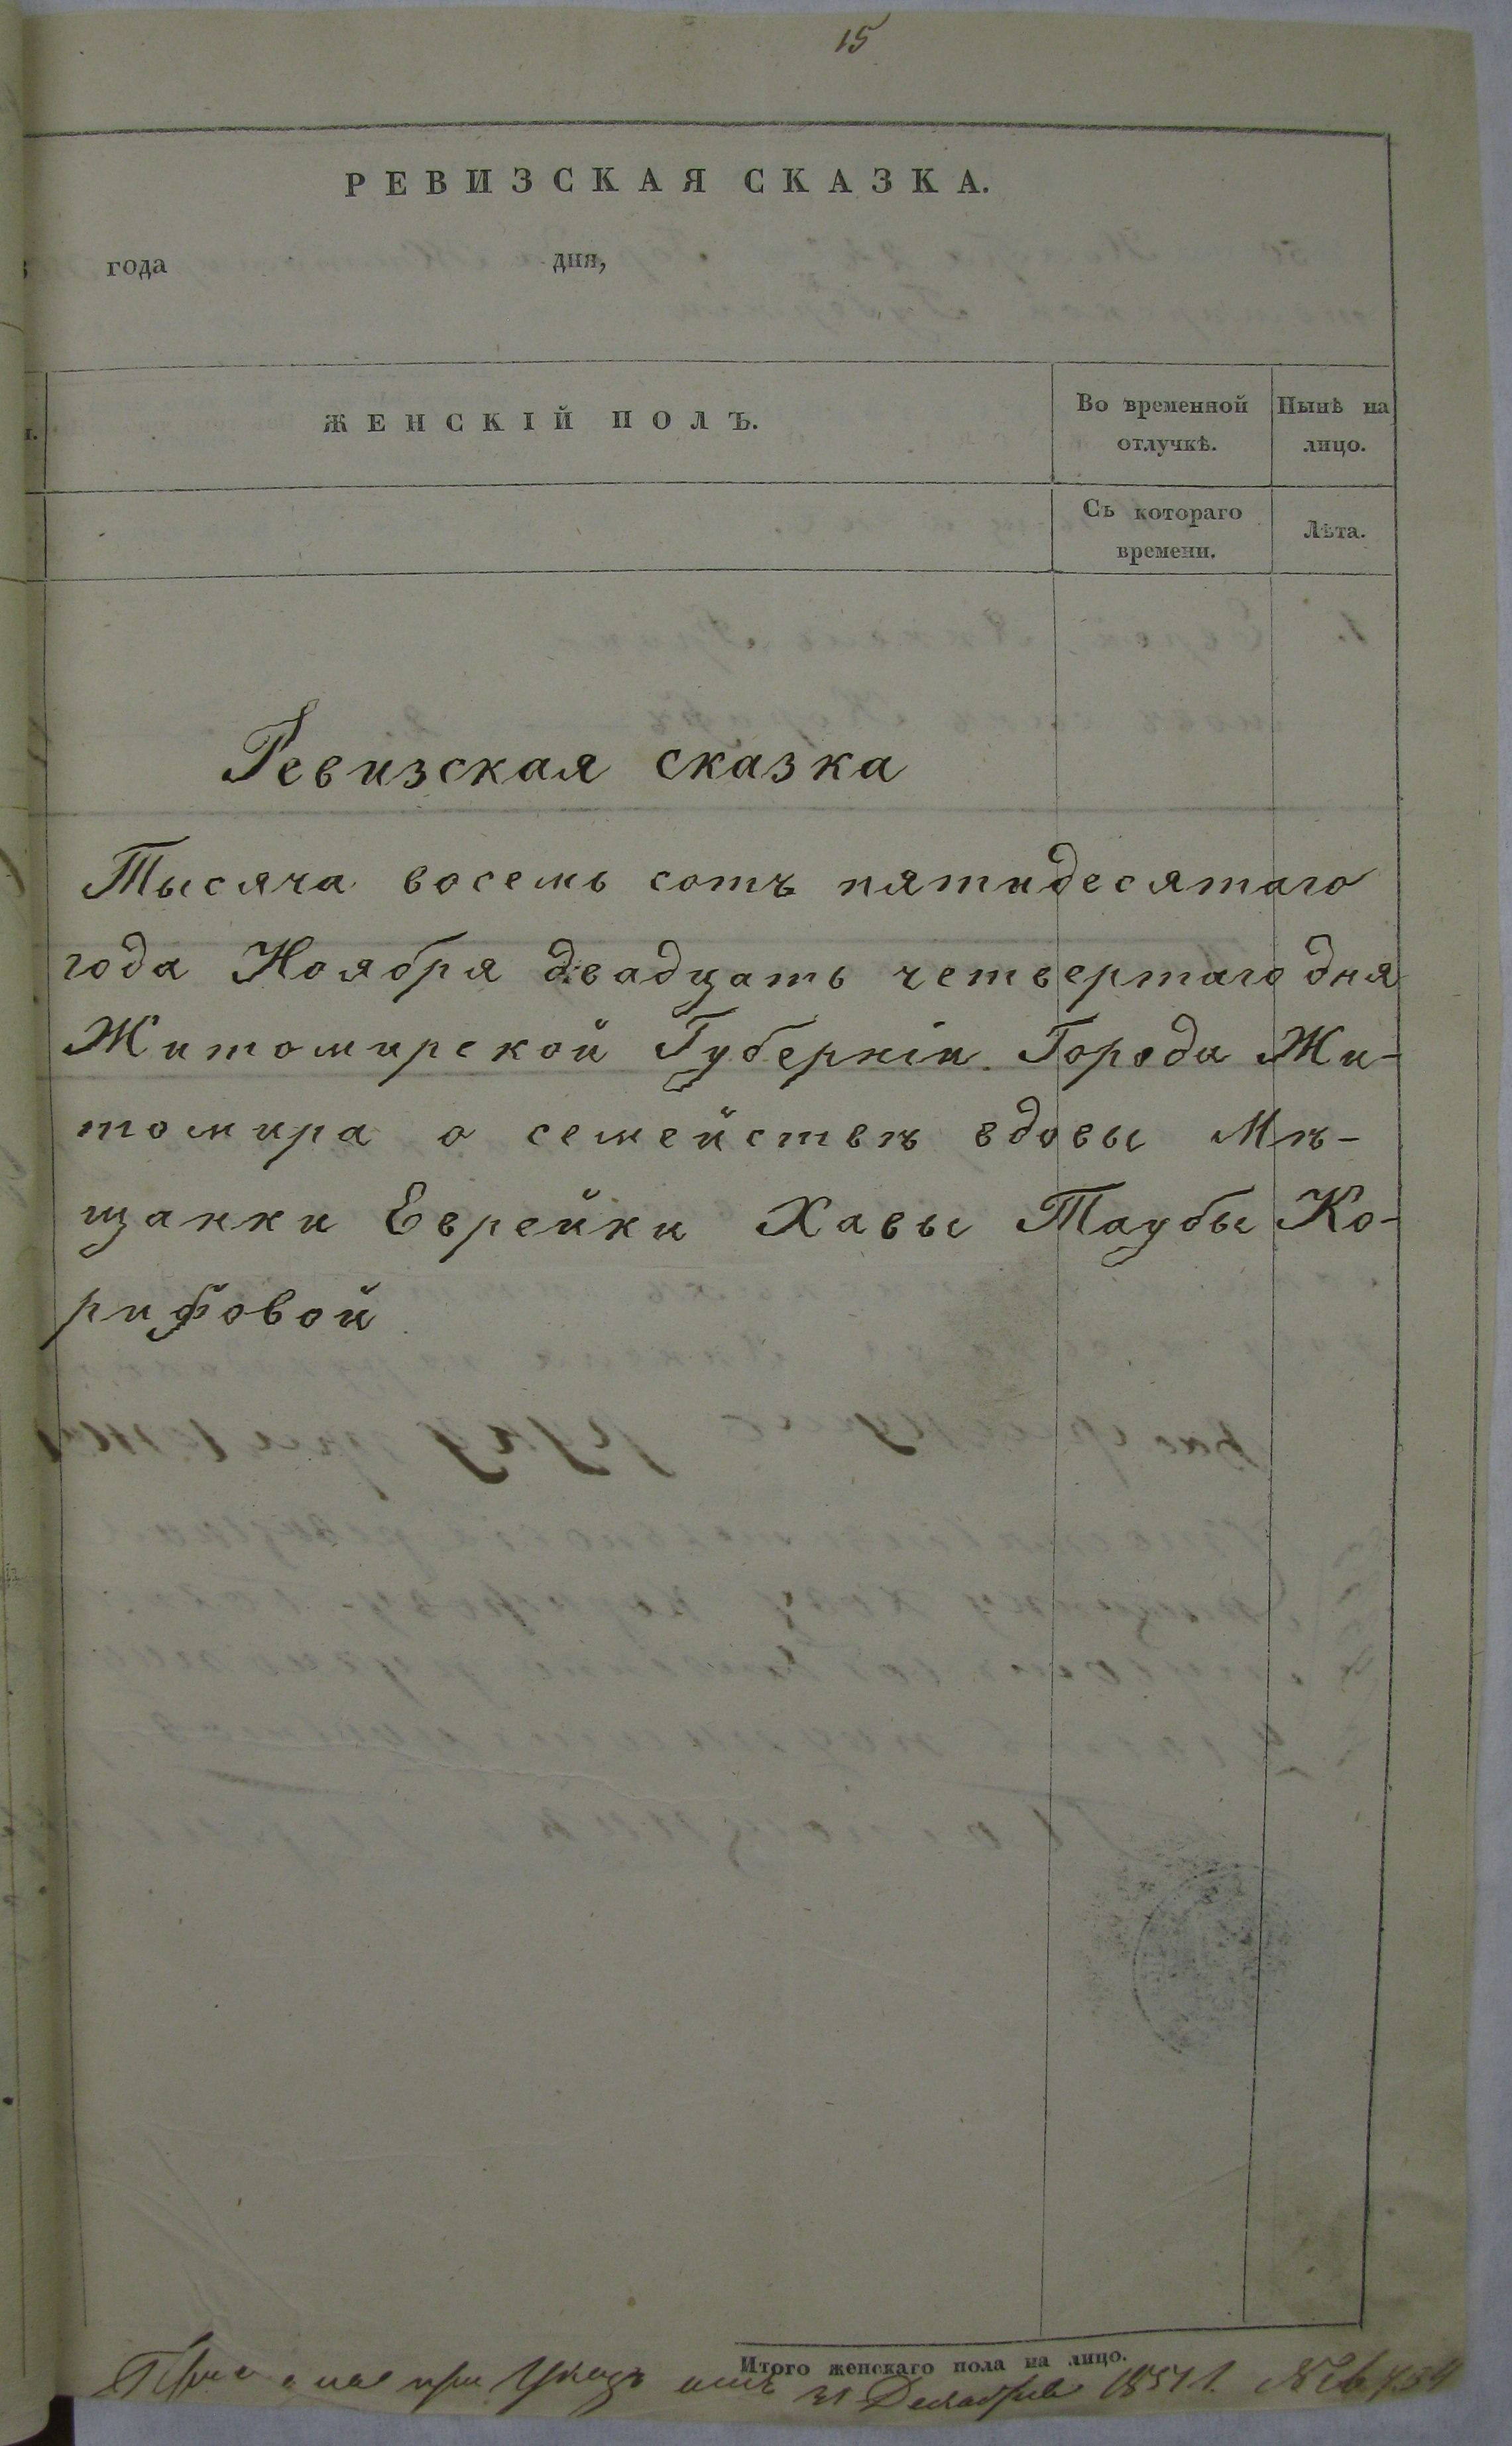 15
РЕВИЗСКАЯ СКАЗКА.
года дня,
ЖЕНСКІЙ ПОЛЪ.
Во временной
отлучкѣ.
Нынѣ на
лицо.
Съ котораго
времени.
Лѣта.
Ревизская сказка
Тысяча восемь сотъ пятидесятаго
года Ноября двадцать четвертаго дня
Житомирской Губерніи. Города Жи-
томира о семействѣ вдовы Мѣ-
щанки Еврейки Хавы Таубы Ко-
рифовой
Итого женскаго пола на лицо.
при Указѣ отъ 31 Декабря 1851 г. №